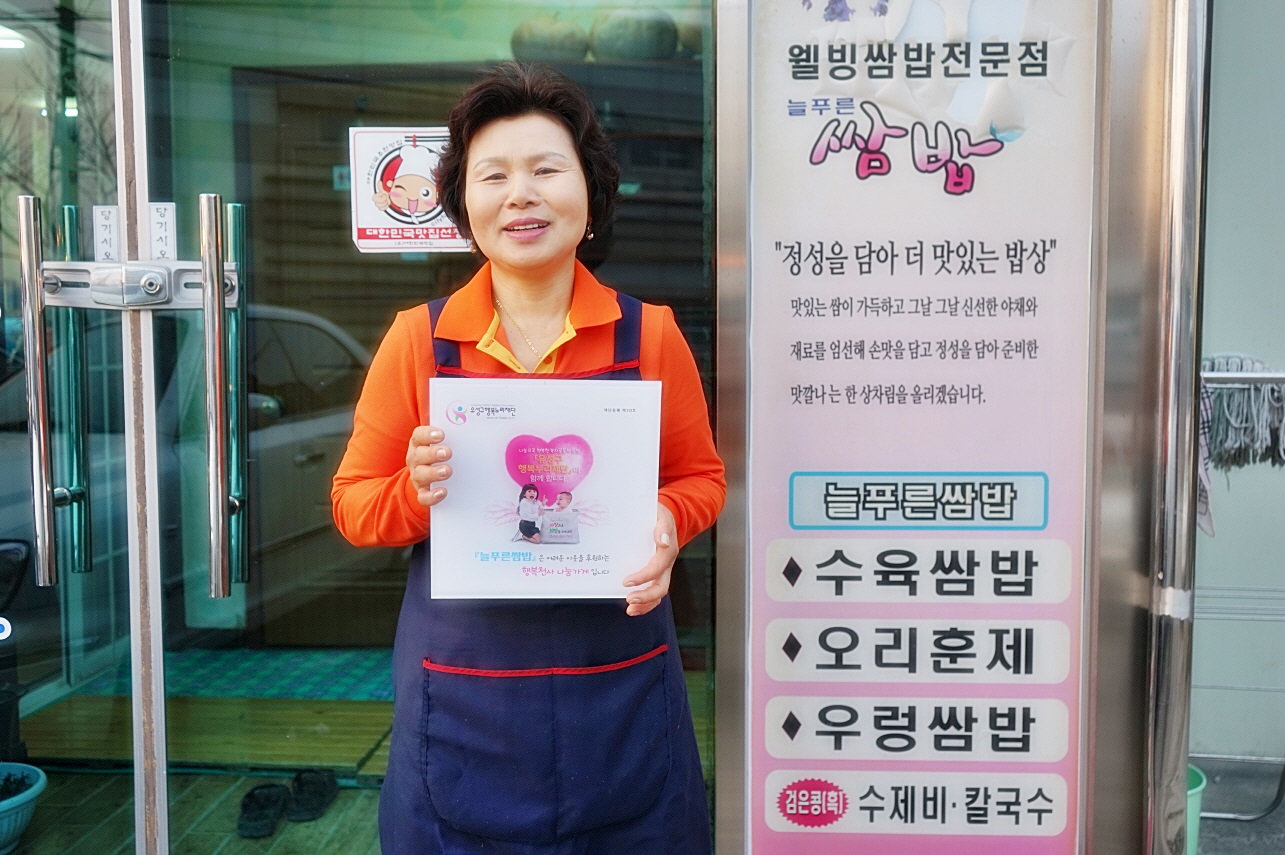 웰빙쌈밥전문점
늘푸른
쌈밥
"정성을 담아 더 맛있는 밥상"
맛있는 쌈이 가득하고 그날 그날 신선한 야채와
재료를 엄선해 손맛을 담고 정성을 담아 준비한
맛깔나는 한 상차림을 올리겠습니다.
늘푸른쌈밥
♦수육쌈밥
♦오리훈제
♦우렁쌈밥
검은콩(흑) 수제비·칼국수
당기시오
당기시오
대한민국맛집선정
유성구행복누리재단
『유성구
행복누리재단』이
함께 합니다
『늘푸른쌈밥』은 어려운 이웃을 후원하는
행복천사 나눔가게 입니다